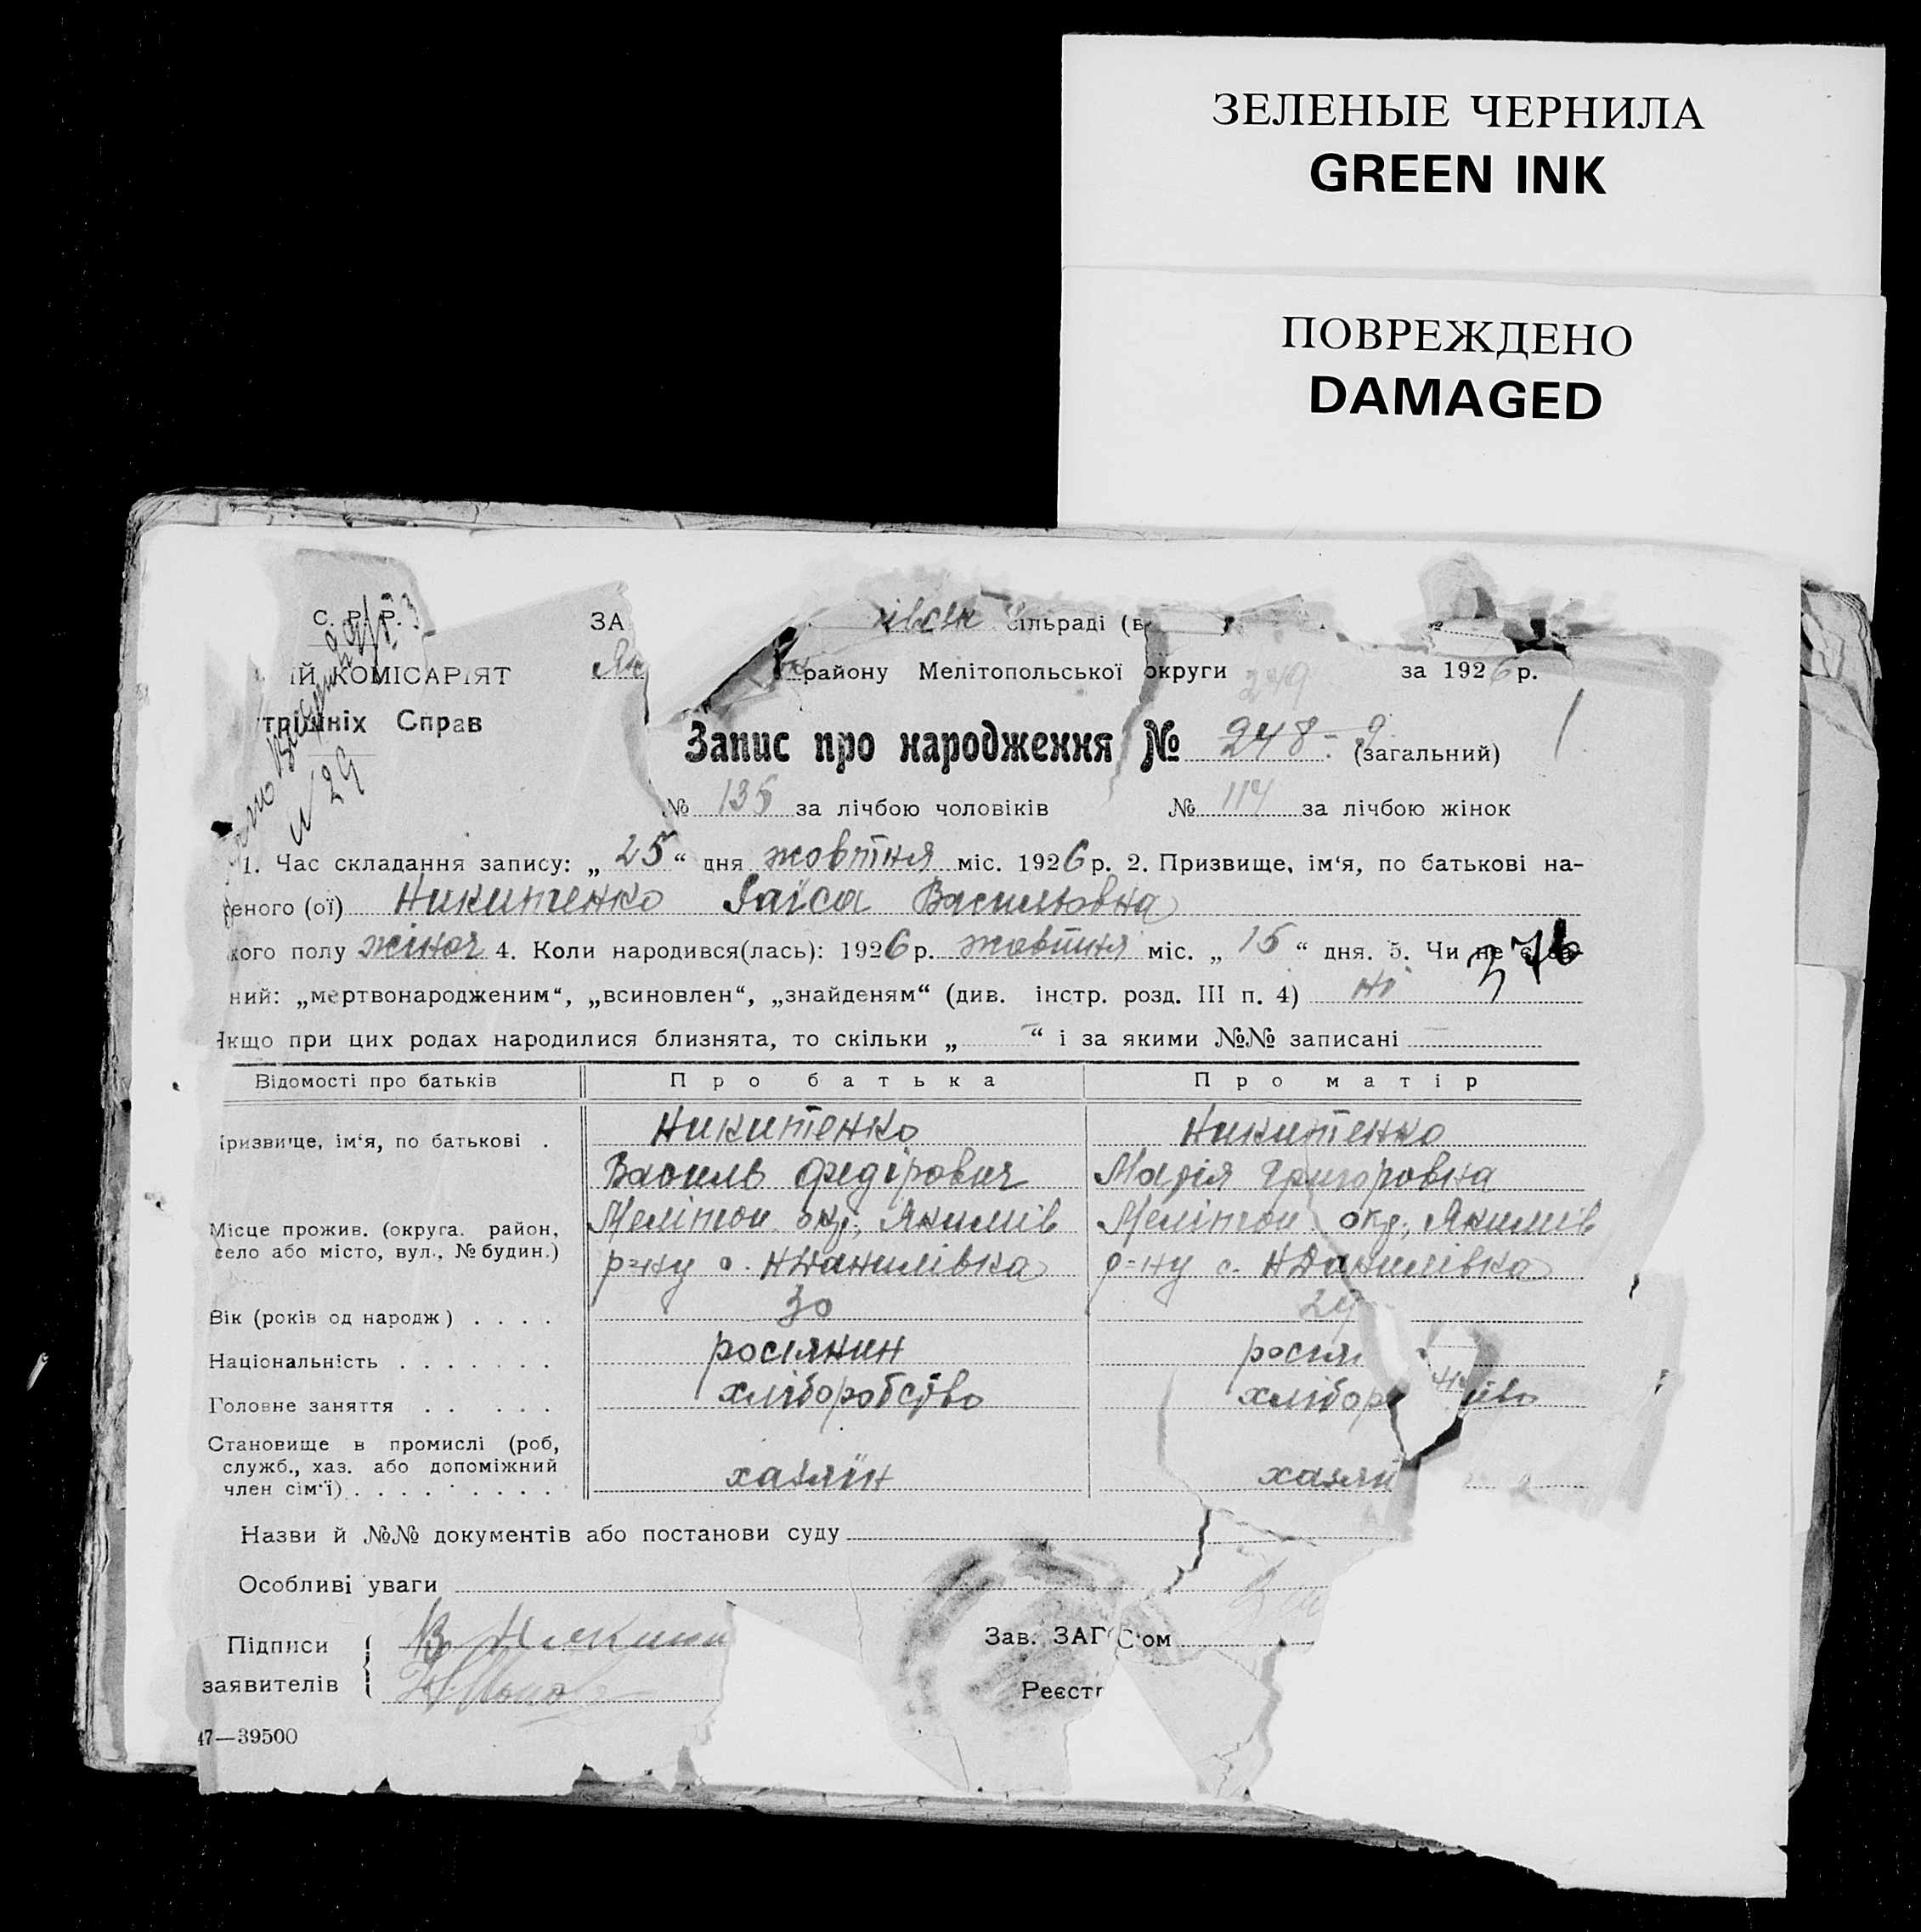 ЗЕЛЕНЫЕ ЧЕРНИЛА
GREEN INK
ПОВРЕЖДЕНО
DAMAGED
С. Р. Р.
ЗА
сільраді (в
ІЙ КОМІСАРІЯТ
району Мелітопольської округи
за 1926 р.
249
трішніх Справ
Запис про народження № 248-9 (загальний)
№ 135 за лічбою чоловіків № 114 за лічбою жінок
1. Час складання запису: „25“ дня жовтня міс. 1926 р. 2. Призвище, ім‘я, по батькові на-
еного (ої) Никитенко Раїса Васильовна
кого полу жіноч 4. Коли народився(лась): 1926 р. жовтня міс. „15“ дня. 5. Чи не є
376
ний: „мертвонародженим“, „всиновлен“, „знайденям“ (див. інстр. розд. III п. 4) ні
Якщо при цих родах народилися близнята, то скільки „ — “ і за якими №№ записані —
Відомості про батьків Про батька Про матір
Призвище, ім‘я, по батькові . Никитенко Никитенко
Василь Федірович Марія Григоровна
Місце прожив. (округа. район, Мелітоп окр., Якимів Мелітоп окр., Якимів
село або місто, вул., № будин.) р=ну с. НДанилівка р=ну с. НДанилівка
Вік (років од народж) . . . . 30
Національність . . . . . . . росіянин росія
Головне заняття . . . . . хліборобство хлібор
Становище в промислі (роб,
служб., хаз. або допоміжний
член сім‘ї) . . . . . . . . . хазяїн хазяй
Назви й №№ документів або постанови суду
Особливі уваги
Підписи В. Никит
Зав. ЗАГС‘ом
заявителів
Реєстр
47—39500